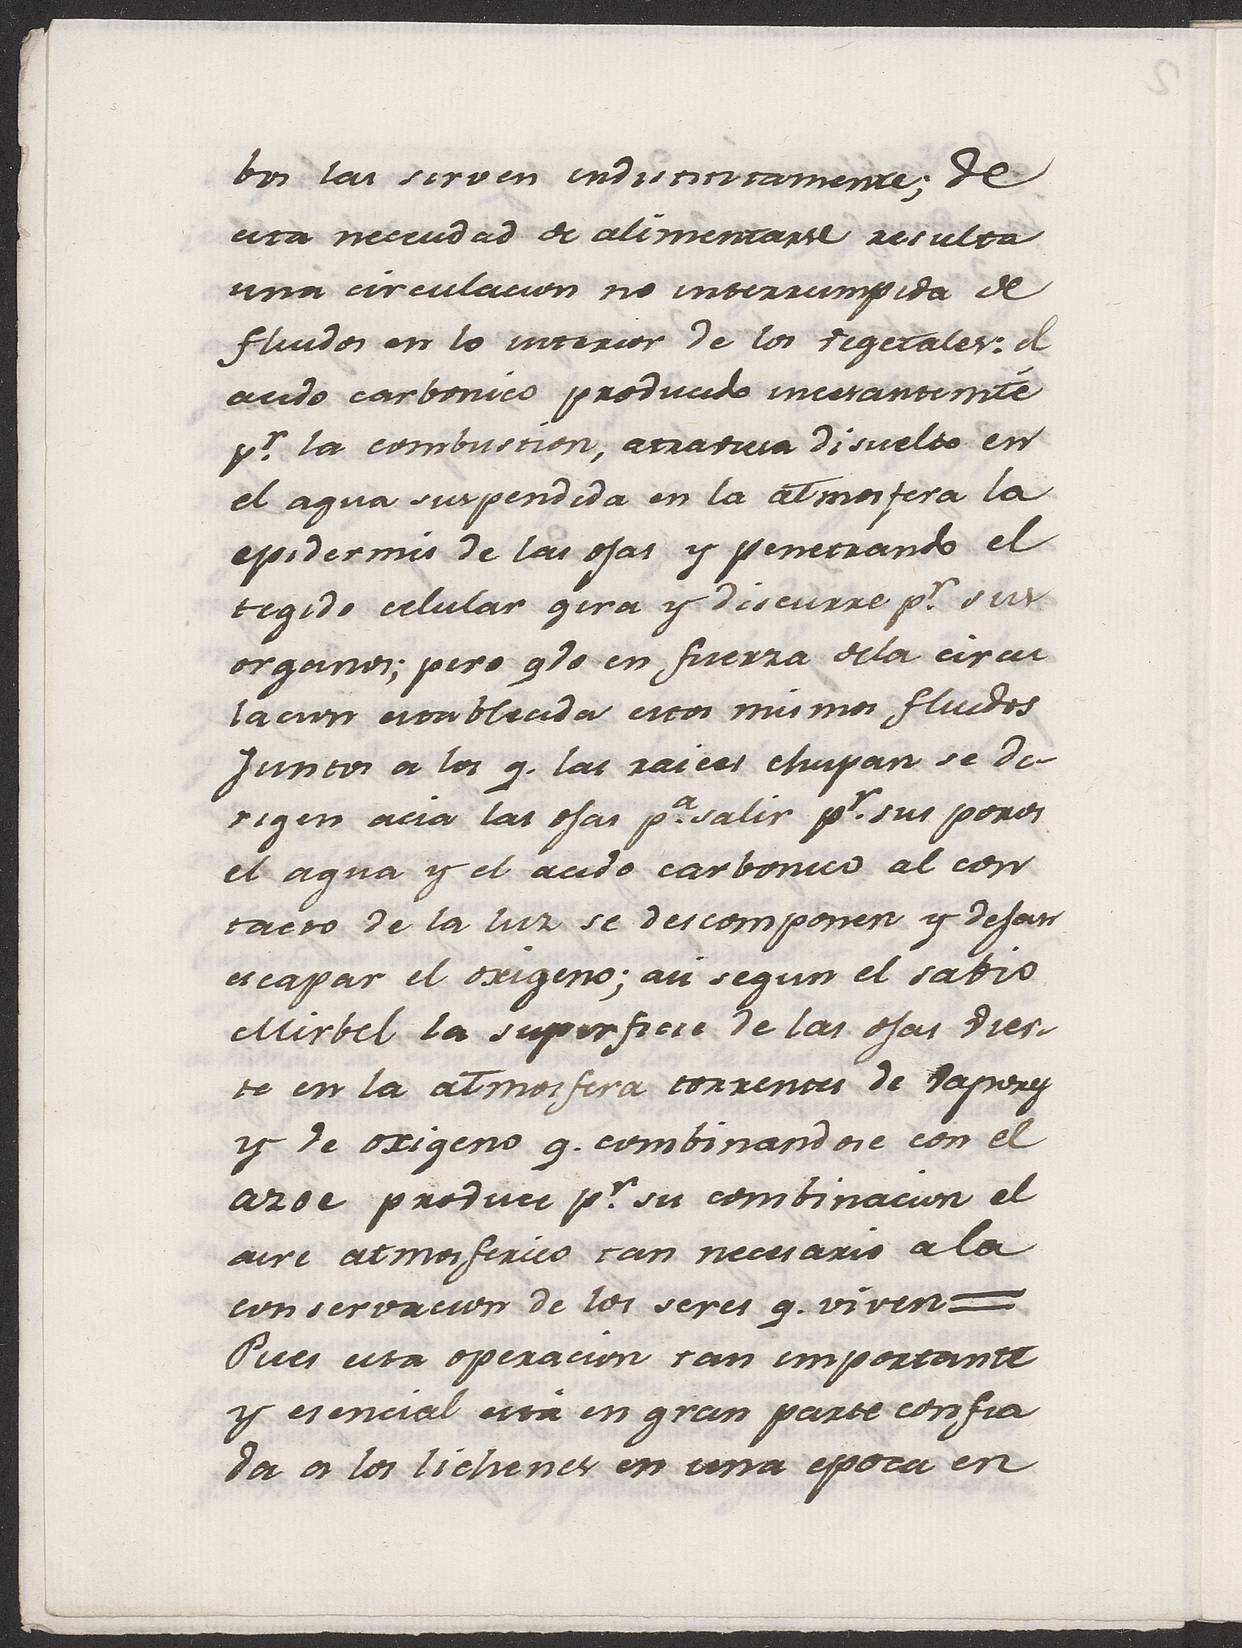 bos las sirven indistintamente; de
esta necesidad de alimentarse resulta
una circulacion no interrumpida de
fluidos en lo interior de los vegetales: el
acido carbonico producido incesantemte
pr. la combustion, atraviesa disuelto en
el agua suspendida en la atmosfera la
epidermis de las ojas y penetrando el
tegido celular gira y discurre pr. sus
organos; pero qdo en fuerza dela circu
lacion establecida estos mismos fluidos
Juntos a los q. las raices chupan se di-
rigen acia las ojas pa. salir pr. sus poros
el agua y el acido carbonico al con
tacto de la luz se descomponen y dejan
escapar el oxigeno; asi segun el sabio
Mirbel la superficie de las ojas vier-
te en la atmosfera torrentes de vapores
y de oxigeno q. combinandose con el
azoe produce pr. su combinacion el
aire atmosferico tan necesario a la
conservacion de los seres q. viven =
Pues esta operacion tan importante
y esencial está en gran parte confia
da a los lichenes en una epoca en
2